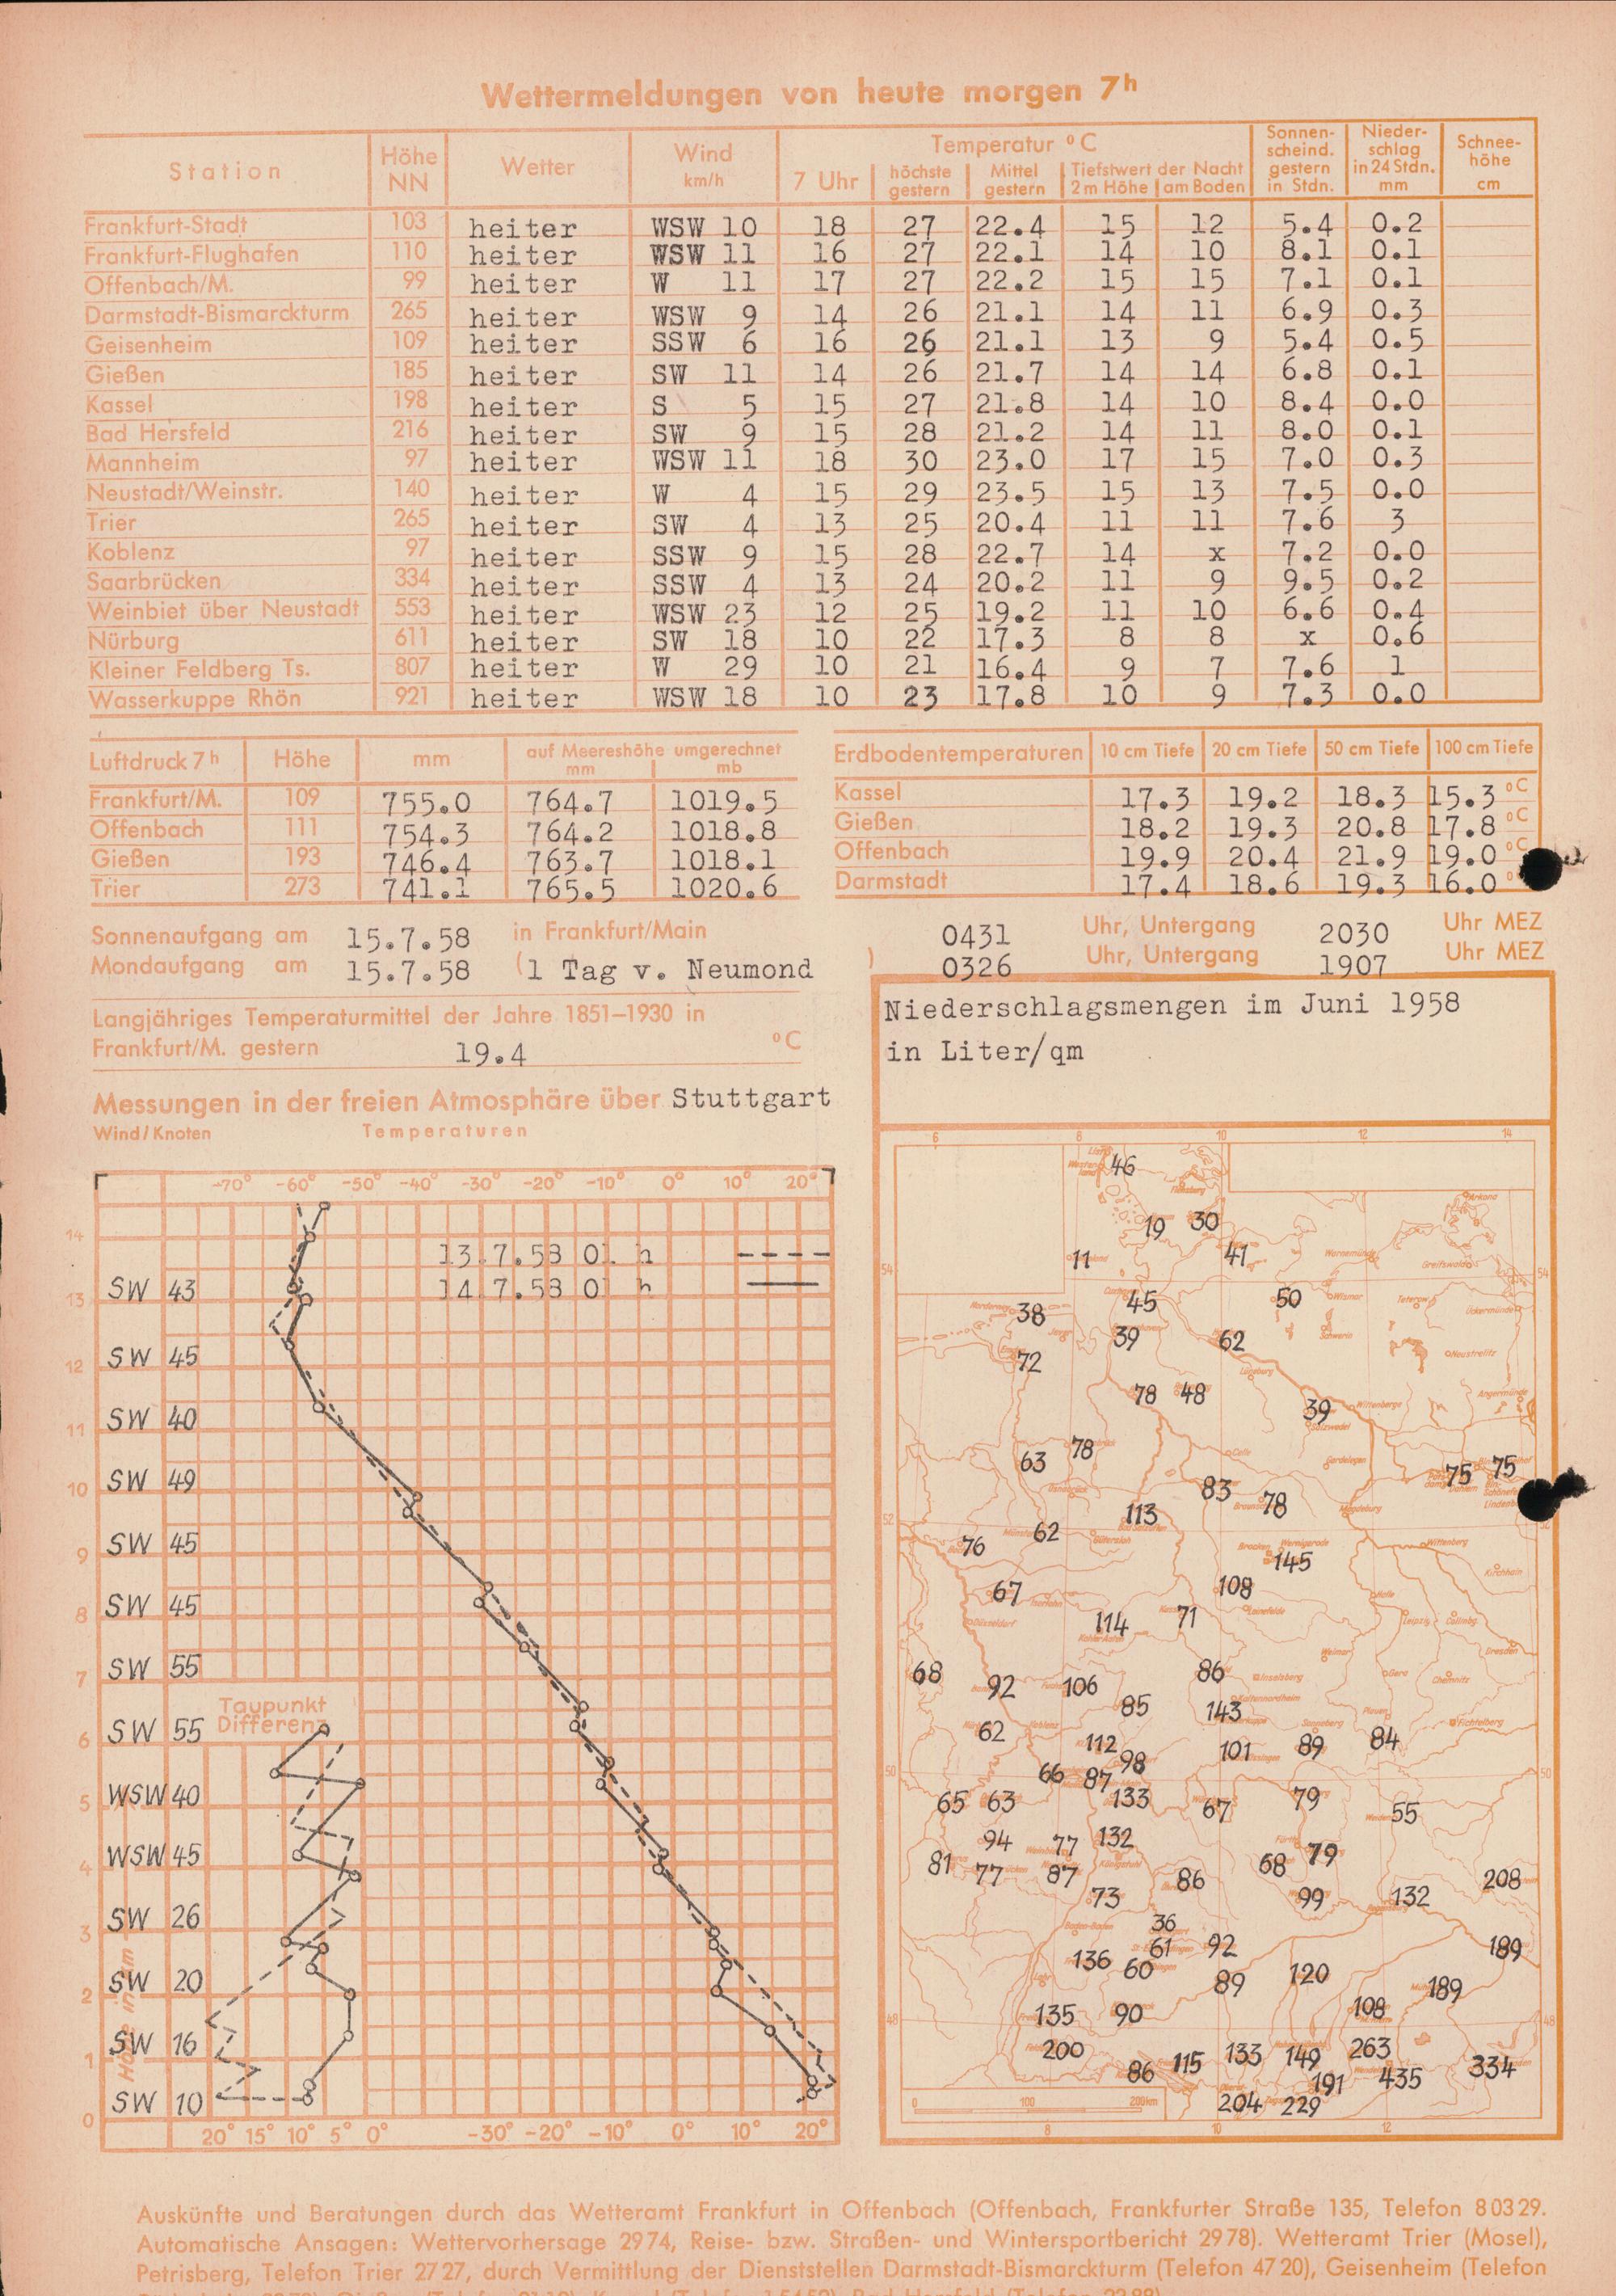 Wettermeldungen von heute morgen 7h
Station Höhe NN Wetter Wind km/h Temperatur °C Sonnenscheind. gestern in Stdn. Niederschlag in 24 Stdn. mm Schneehöhe cm
7 Uhr höchste gestern Mittel gestern Tiefstwert der Nacht 2m Höhe am Boden
Frankfurt-Stadt 103 heiter WSW 10 18 27 22.4 15 12 5.4 0.2
Frankfurt-Flughafen 110 heiter WSW 11 16 27 22.1 14 10 8.1 0.1
Offenbach/M. 99 heiter W 11 17 27 22.2 15 15 7.1 0.1
Darmstadt-Bismarckturm 265 heiter WSW 9 14 26 21.1 14 11 6.9 0.3
Geisenheim 109 heiter SSW 6 16 26 21.1 13 9 5.4 0.5
Gießen 185 heiter SW 11 14 26 21.7 14 14 6.8 0.1
Kassel 198 heiter S 5 15 27 21.8 14 10 8.4 0.0
Bad Hersfeld 216 heiter SW 9 15 28 21.2 14 11 8.0 0.1
Mannheim 97 heiter WSW 11 18 30 23.0 17 15 7.0 0.3
Neustadt/Weinstr. 140 heiter W 4 15 29 23.5 15 13 7.5 0.0
Trier 265 heiter SW 4 13 25 20.4 11 11 7.6 3
Koblenz 97 heiter SSW 9 15 28 22.7 14 x 7.2 0.0
Saarbrücken 334 heiter SSW 4 13 24 20.2 11 9 9.5 0.2
Weinbiet über Neustadt 553 heiter WSW 23 12 25 19.2 11 10 6.6 0.4
Nürburg 611 heiter SW 18 10 22 17.3 8 8 x 0.6
Kleiner Feldberg Ts. 807 heiter W 29 10 21 16.4 9 7 7.6 1
Wasserkuppe Rhön 921 heiter WSW 18 10 23 17.8 10 9 7.3 0.0
Luftdruck 7h Höhe mm auf Meereshöhe umgerechnet mm mb
Frankfurt/M. 109 755.0 764.7 1019.5
Offenbach 111 754.3 764.2 1018.8
Gießen 193 746.4 763.7 1018.1
Trier 273 741.1 765.5 1020.6
Erdbodentemperaturen 10 cm Tiefe 20 cm Tiefe 50 cm Tiefe 100 cm Tiefe
Kassel 17.3 19.2 18.3 15.3 °C
Gießen 18.2 19.3 20.8 17.8 °C
Offenbach 19.9 20.4 21.9 19.0 °C
Darmstadt 17.4 18.6 19.3 16.0
Sonnenaufgang am 15.7.58 in Frankfurt/Main 0431 Uhr, Untergang 2030 Uhr MEZ
Mondaufgang am 15.7.58 (1 Tag v. Neumond ) 0326 Uhr, Untergang 1907 Uhr MEZ
Langjähriges Temperaturmittel der Jahre 1851–1930 in
Frankfurt/M. gestern 19.4 °C
Messungen in der freien Atmosphäre über Stuttgart
Wind/Knoten Temperaturen
-70° -60° -50° -40° -30° -20° -10° 0° 10° 20°
14
13.7.58 01 h
13 SW 43
14.7.58 01 h
12 SW 45
11 SW 40
10 SW 49
9 SW 45
8 SW 45
7 SW 55
Taupunkt
Differenz
6 SW 55
5 WSW 40
4 WSW 45
3 SW 26
2 SW 20
1 SW 16
0 SW 10
20° 15° 10° 5° 0° -30° -20° -10° 0° 10° 20°
Niederschlagsmengen im Juni 1958
in Liter/qm
6 8 10 12 14
46
19 30
11 41
54 54
38 45 50
39 62
72
78 48
39
63 78
75 75
83
78
113
52
62
76
145
67 108
114 71
68 92 106 86
85 143
62 84
112 101 89
98
66 87
50 50
65 63 133 67 79 55
94 77 132
81 77 87 68 79
86 208
73 99 132
36
61 92 189
136 60
89 120 189
108
135 90
48 48
200 133 149 263
86 115 334
191 435
204 229
0 100 200km
8 10 12
Auskünfte und Beratungen durch das Wetteramt Frankfurt in Offenbach (Offenbach, Frankfurter Straße 135, Telefon 80329.
Automatische Ansagen: Wettervorhersage 2974, Reise- bzw. Straßen- und Wintersportbericht 2978). Wetteramt Trier (Mosel),
Petrisberg, Telefon Trier 2727, durch Vermittlung der Dienststellen Darmstadt-Bismarckturm (Telefon 4720), Geisenheim (Telefon